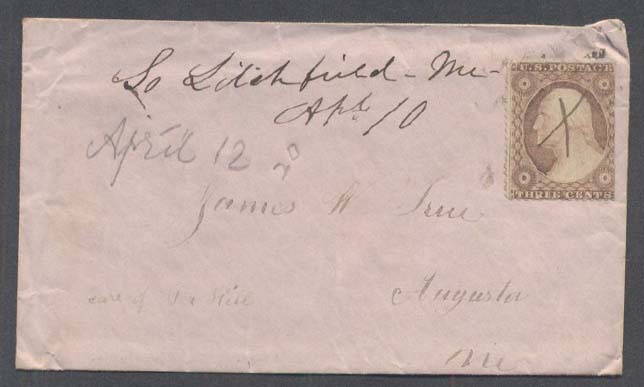 So Litchfield - Me -
Apl 10
U.S. POSTAGE
X
THREE CENTS
April 12
James W True
care of
Augusta
Me